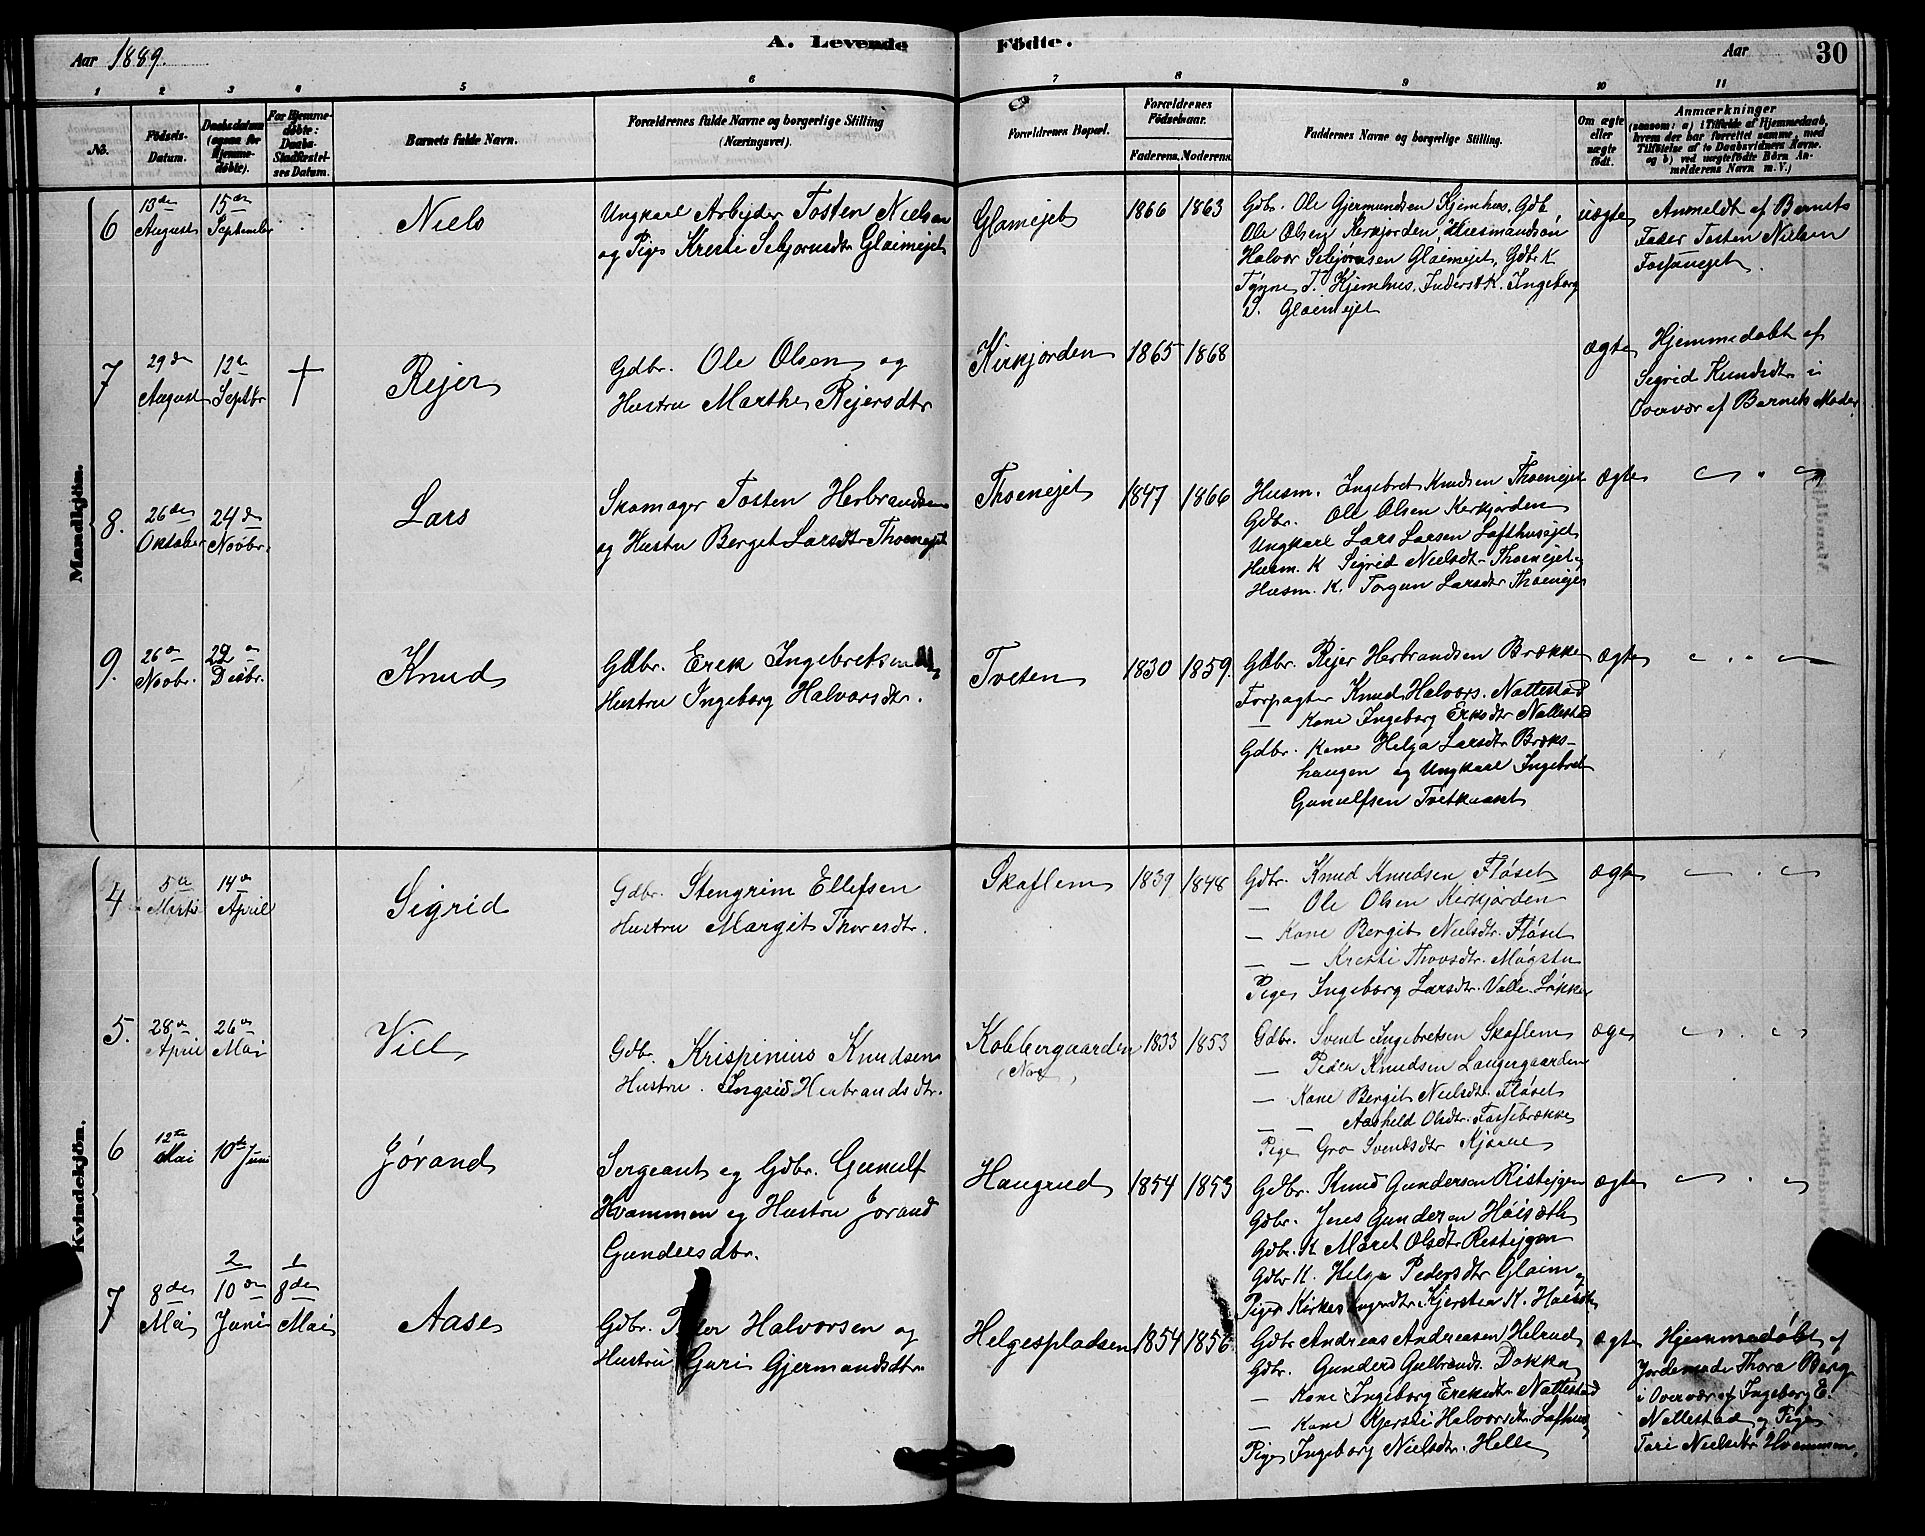 Aar 1889.
A. Levende Födte.
Aar 30
1 2 3 4 5 6 7 8 9 10 11
No.
Födsels-Datum.
Daabsdatum (ogsaa for Hjemme-döbte).
For Hjemme-döbte: Daabs-Stadfæstel-ses Datum.
Barnets fulde Navn.
Forældrenes fulde Navne og borgerlige Stilling (Næringsvei).
Forældrenes Bopæl.
Forældrenes Födselsaar.
Faderens. Moderens.
Faddernes Navne og borgerlige Stilling.
Om ægte eller uægte födt.
Anmærkninger
(saasom: a) i Tilfælde af Hjemmedaab, hvem der har forrettet samme, med Tilföielse af to Daabsvidners Navne. og b) ved uægtefödte Börn An-melderens Navn m. V.)
Mandkjön.
6
13de August
15de September
Niels
Ungkarl Arbejder Tosten Nielsen
og Pige Kristi Sebjørnsdtr Glaimejet
Glamejet
1866 1863
Gdbr. Ole Gjermundsen Kjemhus, Gdb.
Ole Olsen Kirkjorden, Husmandsøn
Halvor Sebjørnsen Glaimejet, Gdbr K
Tønne T. Kjemhus, Inderst K. Ingeborg
S. Glaimejet
uægte
Anmeldt af Barnets
Fader Tosten Nielsen
Fossanejet.
7
29de August
12te Septbr
†
Rejer
Gdbr. Ole Olsen og
Hustru Marthe Rejersdtr
Kirkjorden
1865 1868
ægte
Hjemmedøbt af
Sigrid Knudsdtr i
Overvær af Barnets Moder.
8.
26de Oktober
24de Novbr.
Lars
Skomager Tosten Herbrandsen
og Hustru Berget Larsdtr Thoenejet
Thoenejet
1847 1866
Husm. Ingebret Knudsen Thoenejet
Gdbr. Ole Olsen Kirkjorden
Ungkarl Lars Larsen Lofthusejet
Husm. K Sigrid Nielsdtr Thoenejet
Husm. K. Torgun Larsdtr Thoenejet
ægte
9.
26de Novbr.
22de Desbr.
Knud
Gdbr. Erek Ingebretsen og
Hustru Ingeborg Halvorsdtr.
Tveten
1830 1859.
Gdbr. Rejer Herbrandsen Brække
Forpagter Knud Halvors. Nattestad
— Kone Ingeborg Eriksdtr Nattestad
Gdbr. Kone Helga Larsdtr Bræks-
haugen og Ungkarl Ingebret
Gunulfsen Tvetkaaset
ægte
Kvindekjön.
4
5te Marts
14de April
Sigrid
Gdbr. Stengrim Ellefsen
Hustru Margit Thoresdtr.
Skaflem
1839 1848
Gdbr. Knud Knudsen Fløset
— Ole Olsen Kirkjorden
— Kone Bergit Nielsdtr. Fløset
— — Kristi Thovsdtr. Møgstu
Pige Ingeborg Larsdtr. Valle Løkken
ægte
5.
28de April
26de Mai
Vill
Gdbr. Krispinius Knudsen
Hustru. Ingrid Herbrandsdtr.
Kobbergaarden
(Nore)
1833 1853
Gdbr. Svend Ingebretsen Skaflem
— Peder Knudsen Langergaarden
— Kone Bergit Nielsdtr. Fløset
— — Aashild Olsdtr. Fossebrække
Pige Gro Svendsdtr Kjønne
ægte
6
12te Mai
10de Juni
Jørand
Sergeant og Gdbr. Gunulf
Hvammen og Hustru Jørand
Gundersdtr.
Haugrud
1854 1853
Gdbr. Knud Gundersen Ristejgen
Gdbr. Jens Gundersen Høisæth
Gdbr. K Maret Olsdtr Restejgen
Gdbr K. Helga Pedersdtr Glaim og
Piger Kjersten K. Høisæth
ægte
7
8de Mai
2 10de Juni
1 8de Mai
Aase
Gdbr. Peder Halvorsen og
Hustru Guri Gjermundsdtr
Helgespladsen
1854 1856
Gdbr Andreas Andreasen Helrud
Gdbr. Gunders Gulbrands. Dokka
— Kone Ingeborg Ereksdtr Nattestad
— Kone Kjersti Halvorsdtr. Lofthus
Pige Ingeborg Nielsdtr. Helle
ægte
Hjemmedøbt af
Jordemoder Thora Berg
i Overvær af Ingeborg E.
Nattestad og Pige
Tori Nielsdtr Hvammen.